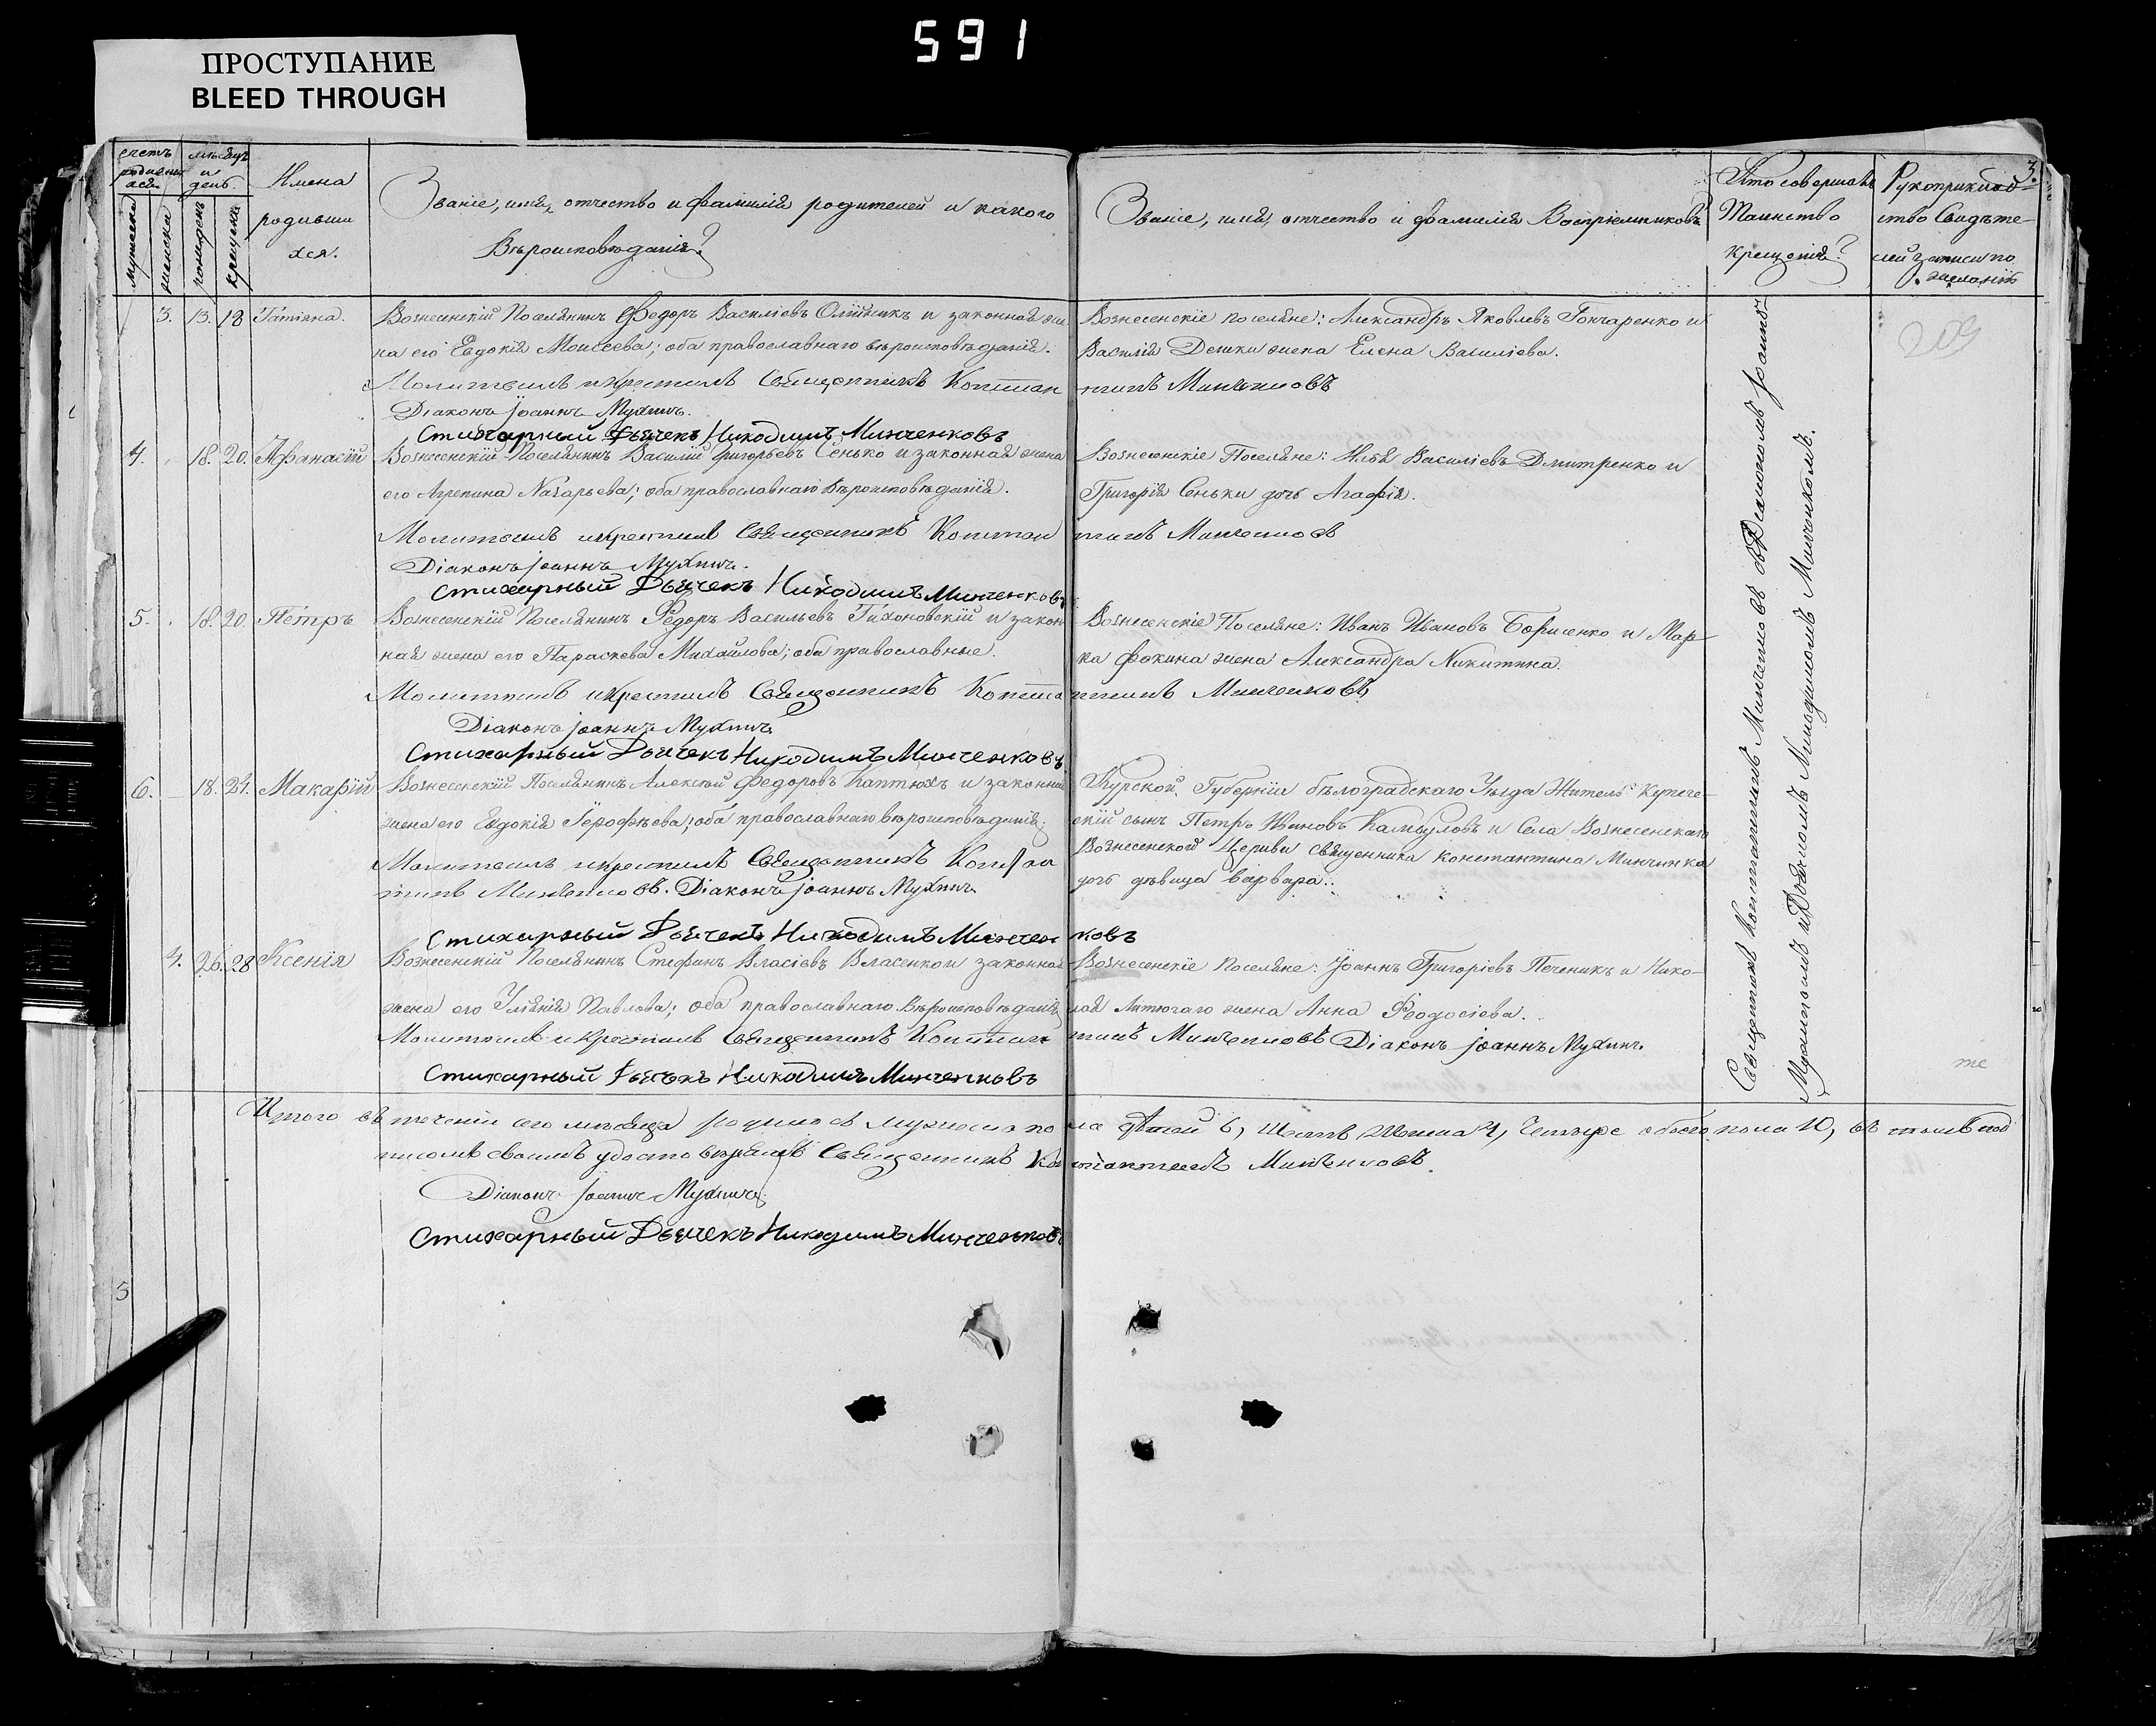 591
ПРОСТУПАНИЕ
BLEED THROUGH
3.
счетъ мѣсяцъ
и
день.
Имена
родивши
хся.
мужеска женска рожденъ крещенъ
Званіе, имя, отчество и фамилія родителей и какого
Вѣроисповѣданія?
Званіе, имя, отчество и фамилія Воспріемниковъ
Кто совершалъ
Таинство
крещенія?
Рукоприклад
ство Свидѣте-
лей записи по
желанію
3. 13. 18 Татіяна. Вознесенскій Поселянинъ Федоръ Василіевъ Олійникъ и законная же
на его Евдокія Моисеева; оба православнаго вѣроисповѣданія.
Вознесенскіе поселяне: Александръ Яковлевъ Гончаренко и
Василія Дешки жена Елена Василіева.
209
Молитвилъ и крестилъ Священникъ Констан тинъ Минченковъ
Діаконъ Іоаннъ Мухинъ.
Стихарный Дьячекъ Никодимъ Минченковъ
4. 18. 20. Афанасій Вознесенскій Поселянинъ Василій Григорьевъ Сенько и законная жена
его Агрепина Назарьева; оба православнаго вѣроисповѣданія.
Вознесенскіе Поселяне: Илья Василіевъ Дмитренко и
Григорія Сеньки дочь Агафія.
Молитвилъ и крестилъ Священникъ Констан тинъ Минченковъ
Діаконъ Іоаннъ Мухинъ.
Стихарный Дьячекъ Никодимъ Минченковъ
5. 18. 20. Петръ Вознесенскій Поселянинъ Федоръ Васильевъ Тихоновскій и закон
ная жена его Параскева Михайлова; оба православные.
Вознесенскіе Поселяне: Иванъ Ивановъ Борисенко и Мар-
ка Фокина жена Александра Никитина.
Молитвилъ и крестилъ Священникъ Конста нтинъ Минченковъ
Діаконъ Іоаннъ Мухинъ
Стихарный Дьячекъ Никодимъ Минченковъ
6. 18. 21. Макарій Вознесенскій Поселянинъ Алексѣй Федоровъ Каптюхъ и законная
жена его Евдокія Іерофѣева; оба православнаго вѣроисповѣданія.
Курской Губерніи бѣлоградскаго Уѣзда Житель Купече-
скій сынъ Петръ Ивановъ Камбуловъ и Села Вознесенскаго
Вознесенской Церкви священника Константина Минчинка
дочь дѣвица Варвара.
Молитвилъ и крестилъ Священникъ Констан
тинъ Минченковъ. Діаконъ Іоаннъ Мухинъ
Стихарный Дьячекъ Никодимъ Минчен ковъ
4. 26. 28 Ксенія Вознесенскій Поселянинъ Стефанъ Власіевъ Власенко и законная
жена его Уліянія Павлова; оба православнаго вѣроисповѣданія
Вознесенскіе Поселяне: Іоаннъ Григоріевъ Печеникъ и Нико-
лая Лютогаго жена Анна Феодосіева.
Молитвилъ и крестилъ Священникъ Констан тинъ Минченковъ Діаконъ Іоаннъ Мухинъ.
Стихарный Дьячекъ Никодимъ Минченковъ
Священникъ Константинъ Минченковъ съ Діакономъ Іоанномъ
Мухинымъ и Дьячкомъ Никодимомъ Минченкомъ.
те
Итого въ теченіи сего мѣсяца родилось мужеска по ла детей 6, Шесть Женска 4, Четыре обоего пола 10, въ томъ под
писомъ своимъ удостовѣряемъ Священникъ Кон стантинъ Минченковъ.
Діаконъ Іоаннъ Мухинъ
Стихарный Дьячекъ Никодимъ Минченковъ
5